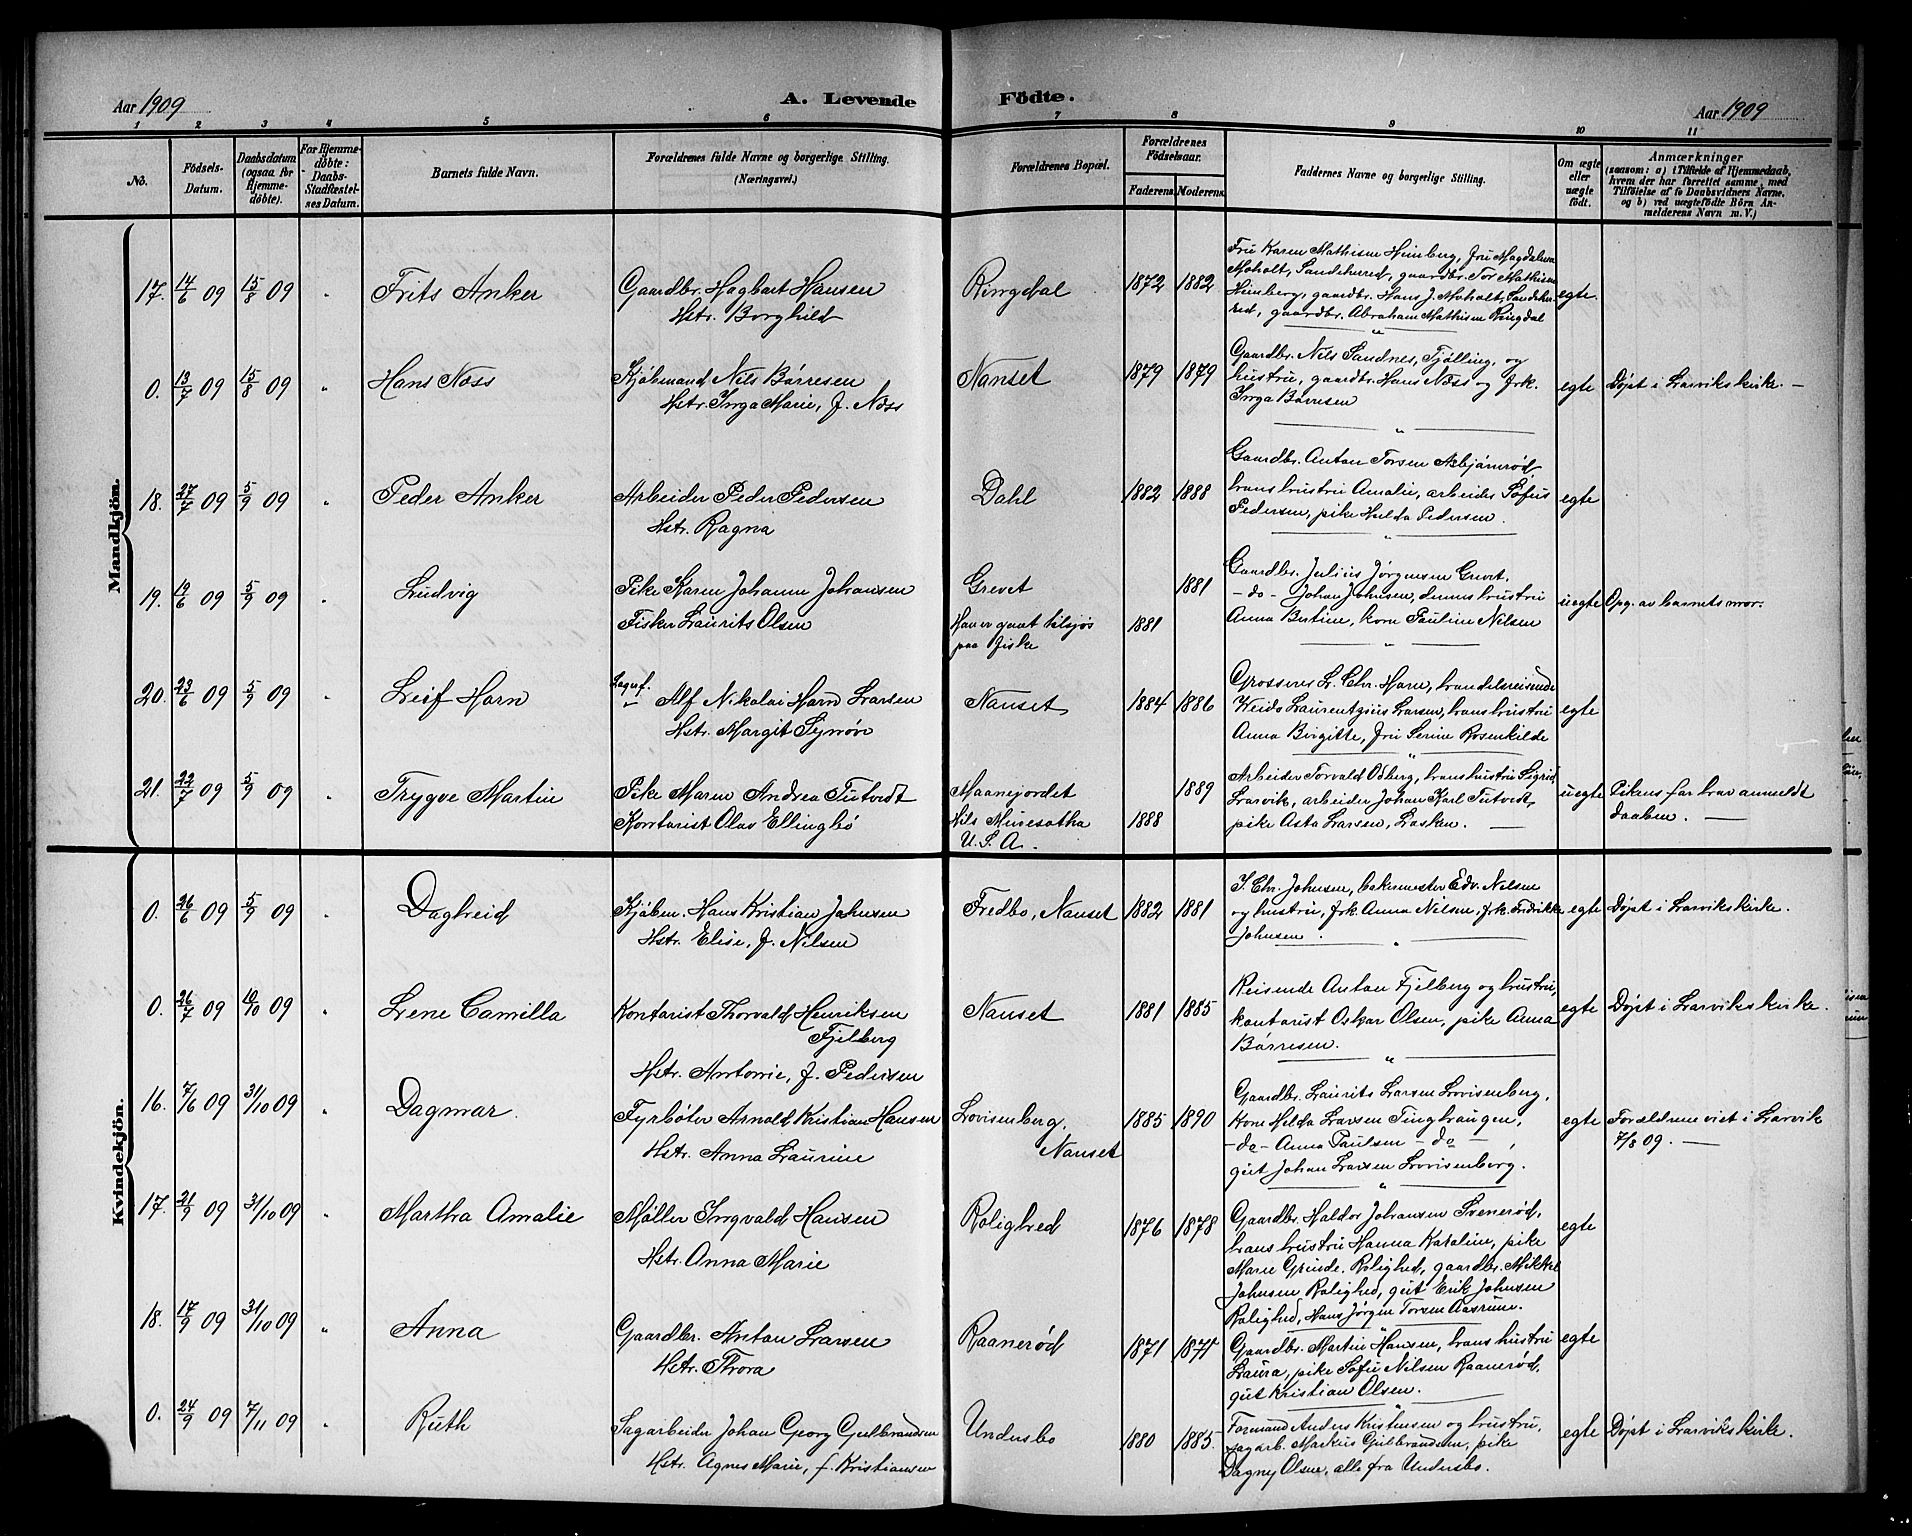 Aar 1909 A. Levende Födte. Aar 1909
1 2 3 4 5 6 7 8 9 10 11
No.
Födsels-
Datum.
Daabsdatum
(ogsaa for
Hjemme-
döbte).
For Hjemme-
döbte:
Daabs-
Stadfæstel-
ses Datum.
Barnets fulde Navn.
Forældrenes fulde Navne og borgerlige Stilling.
(Næringsvei.)
Forældrenes Bopæl.
Forældrenes
Födselsaar.
Faderens. Moderens.
Faddernes Navne og borgerlige Stilling.
Om ægte
eller
uægte
födt.
Anmærkninger
(saasom: a) i Tilfælde af Hjemmedaab,
hvem der har forrettet samme, med
Tilföielse af to Daabsvidners Navne,
og b) ved uægtefödte Börn An-
melderens Navn m. V.)
Mandkjön.
17. 14/6 09 15/8 09 " Frits Anker
Gaardbr. Hagbart Hansen
Hstr. Borghild
Ringdal 1872 1882
Fru Karen Mathisen Himberg, fru Magdalena
Moholt, Sandeherred, gaardbr. Tor Mathisen
Himberg, gaardbr. Hans J. Moholt, Sandeher-
red, gaardbr. Abraham Mathisen Ringdal
egte.
0. 13/7 09 15/8 09 " Hans Næss
Kjøbmand Nils Børresen
Hstr. Inga Marie, f. Næss
Nanset 1879 1879
Gaardbr. Nils Sandnes, Tjølling, og
hustru, gaardbr. Hans Næss og frk.
Inga Børresen
egte Døpt i Larviks kirke. —
18. 27/7 09 5/9 09 " Peder Anker
Arbeider Peder Pedersen
Hstr. Ragna
Dahl 1882 1888
Gaardbr. Anton Torsen Asbjørnrød,
hans hustru Amalie, arbeider Sofus
Pedersen, pike Hulda Pedersen.
egte
19. 19/6 09 5/9 09 " Ludvig
Pike Karen Johanne Johansen
Fisker Laurits Olsen
Grevet
Han er gaat tilsjøs
paa fiske
1881 1881
Gaardbr. Julius Jørgensen Grevet,
— do — Johan Johnsen, dennes hustru
Anna Bertine, kone Pauline Nilsen
uegte Opg. av barnets mor.
20. 23/6 09 5/9 09 " Leif Horn
Lagerf. Alf Nikolai Horn Larsen
Hstr. Margit Synnøve
Nanset 1884 1886
Grosserer L. Chr. Horn, handelsreisende
Laurentzius Larsen, hans hustru
Anna Birgitte, fru Serine Rosenkilde
egte
21. 22/7 09 5/9 09 " Trygve Martin
Pike Maren Andrea Tutvedt
Kontorist Olav Ellingbø
Maanejordet
Nils Minesotha
U. S. A.
1888 1889
Arbeider Torvald Odberg, hans hustru Sigrid
Larvik, arbeider Johan Karl Tutvedt,
pike Asta Larsen, Lasken. —
uegte Pikens far har anmeldt
daaben. —
Kvindekjön.
0. 26/6 09 5/9 09 Dagheid
Kjøbm. Hans Kristian Johnsen
Hstr. Elise, f. Nilsen
Fredbo, Nanset 1882 1881
J. Chr. Johnsen, bakermester Edv. Nilsen
og hustru, frk. Anna Nilsen, frk. Fredrikke
Johnsen.
egte Døpt i Larviks kirke.
0. 26/7 09 10/10 09 " Lene Camilla
Kontorist Thorvald Henriksen
Fjelberg
Hstr. Antonie, f. Pedersen
Nanset 1881 1885
Reisende Anton Fjelberg og hustru,
kontorist Oskar Olsen, pike Anna
Børresen.
egte Døpt i Larviks kirke.
16. 7/6 09 31/10 09 " Dagmar.
Fyrbøter Arnold Kristian Hansen
Hstr. Anna Laurine
Lovisenberg,
Nanset
1885 1890
Gaardbr. Laurits Larsen Lovisenberg,
Kone Hilda Larsen Tinghaugen,
— do — Anna Paulsen — do —,
gut Johan Larsen Lovisenberg.
egte Forældrene viet i Larvik
7/8 09. —
17. 21/9 09 31/10 09 " Martha Amalie
Møller Ingvald Hansen
Hstr. Anna Marie
Rolighed 1876 1878
Gaardbr. Haldor Johansen Svenerød,
hans hustru Hanna Karoline, pike
Marie Grinde, Rolighed, gaardbr. Mikkel
Johnsen Rolighed, gut Erik Johnsen
Rolighed, Hans Jørgen Torsen Aasrum.
egte
18. 17/9 09 31/10 09 " Anna
Gaardbr. Anton Larsen
Hstr. Thora
Raanerød 1871 1871
Gaardbr. Martin Hansen, hans hustru
Laura, pike Sofie Nilsen Raanerød,
gut Kristian Olsen.
egte
0. 24/9 09 7/11 09 " Ruth
Sagarbeider Johan Georg Gulbrandsen
Hstr. Agnes Marie, f. Kristiansen
Undersbo 1880 1885.
Formand Anders Kristensen og hustru,
sagarb. Markus Gulbrandsen, pike
Dagny Olsen, alle fra Undersbo.
egte Døpt i Larviks kirke.